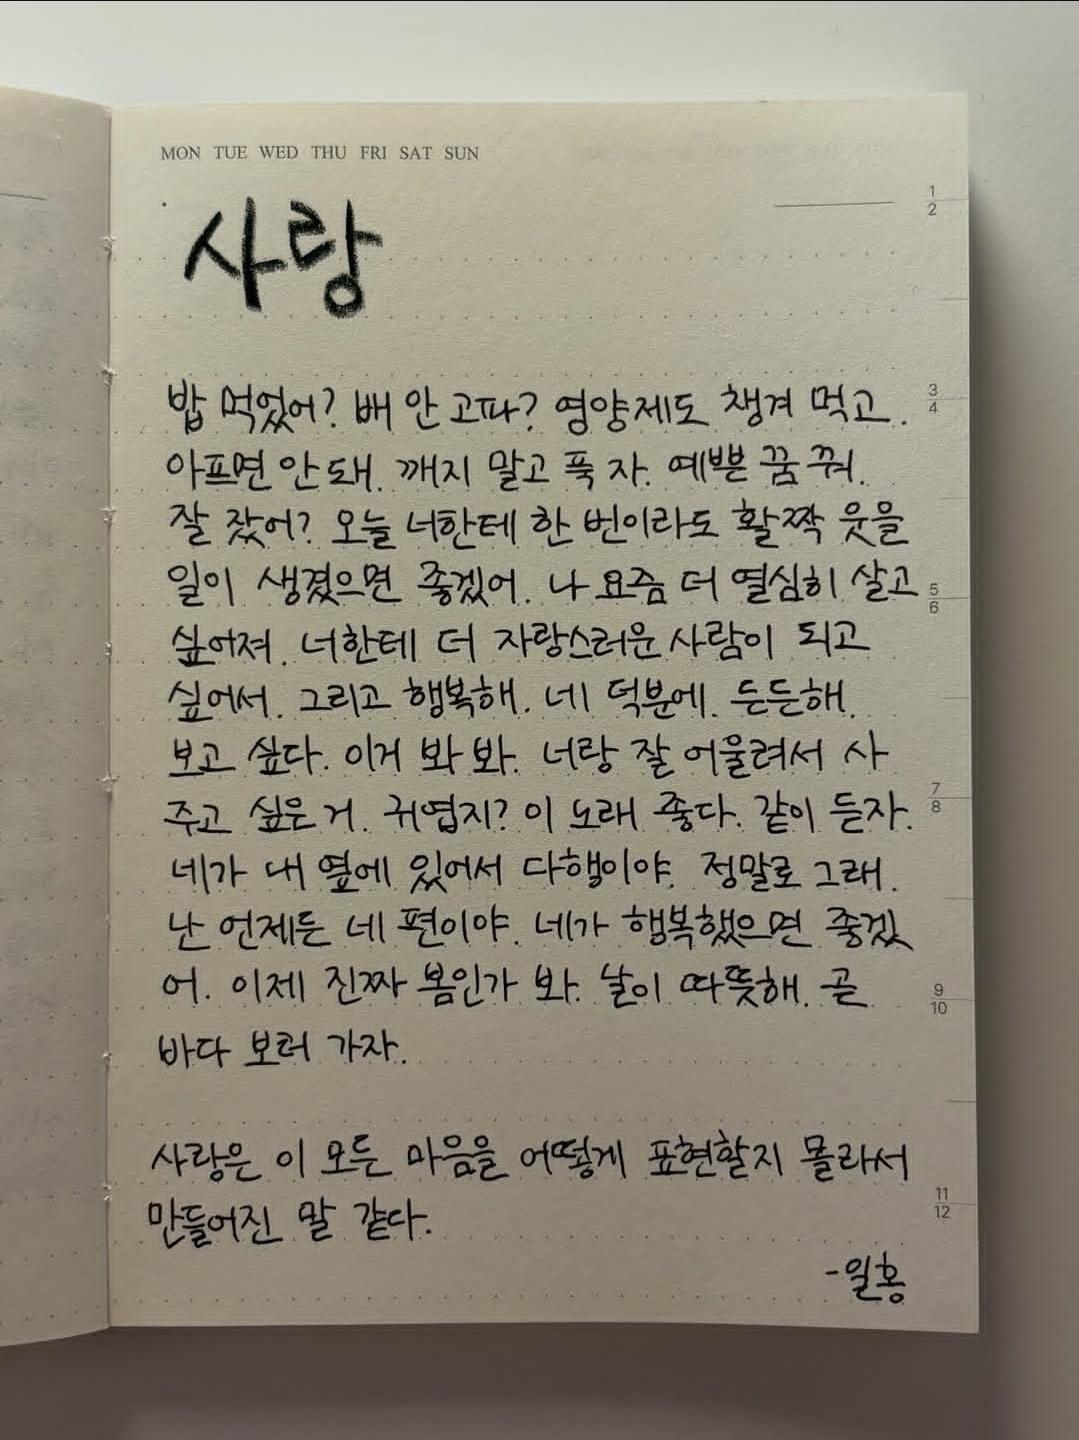 MON TUE WED THU FRI SAT SUN
1
2
사랑
밥 먹었어? 배 안 고파? 영양제도 챙겨 먹고.
3
4
아프면 안 돼. 깨지 말고 푹 자. 예쁜 꿈 꿔.
잘 잤어? 오늘 너한테 한 번이라도 활짝 웃을
일이 생겼으면 좋겠어. 나 요즘 더 열심히 살고
5
6
싶어져. 너한테 더 자랑스러운 사람이 되고
싶어서. 그리고 행복해. 네 덕분에. 든든해.
보고 싶다. 이거 봐 봐. 너랑 잘 어울려서 사
주고 싶은 거. 귀엽지? 이 노래 좋다. 같이 듣자.
7
8
네가 내 옆에 있어서 다행이야. 정말로 그래.
난 언제든 네 편이야. 네가 행복했으면 좋겠
어. 이제 진짜 봄인가 봐. 날이 따뜻해. 곧
9
10
바다 보러 가자.
사랑은 이 모든 마음을 어떻게 표현할지 몰라서
만들어진 말 같다.
11
12
-일홍